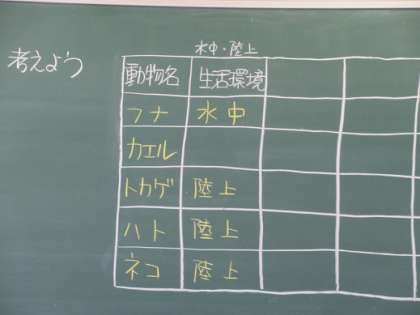 考えよう
水中・陸上
動物名 生活環境
フナ 水中
カエル
トカゲ 陸上
ハト 陸上
ネコ 陸上